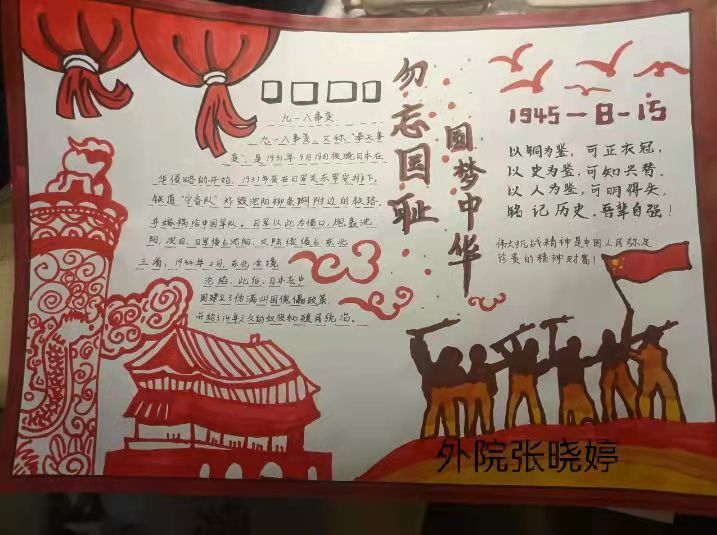 九一八事变
九一八事变，又称"奉天事
变"，是1931年9月18日夜晚日本在
华侵略的开始，1931年夜在日军关东军安排下，
铁道"守备队"炸毁沈阳柳条湖附近的铁路，
并嫁祸给中国军队。日军以此为借口，炮轰沈
阳，次日，日军侵占沈阳，又陆续侵占东北
三省，1932年2月，东北全境
沦陷，此后，日本在中
国建立了伪满州国傀儡政策
开始了14年之久的奴役和殖民统治。
勿忘国耻
圆梦中华
1945-8-15
以铜为鉴，可正衣冠，
以史为鉴，可知兴替，
以人为鉴，可明得失，
铭记历史，吾辈自强！
伟大抗战精神是中国人民弥足
珍贵的精神财富！
外院张晓婷